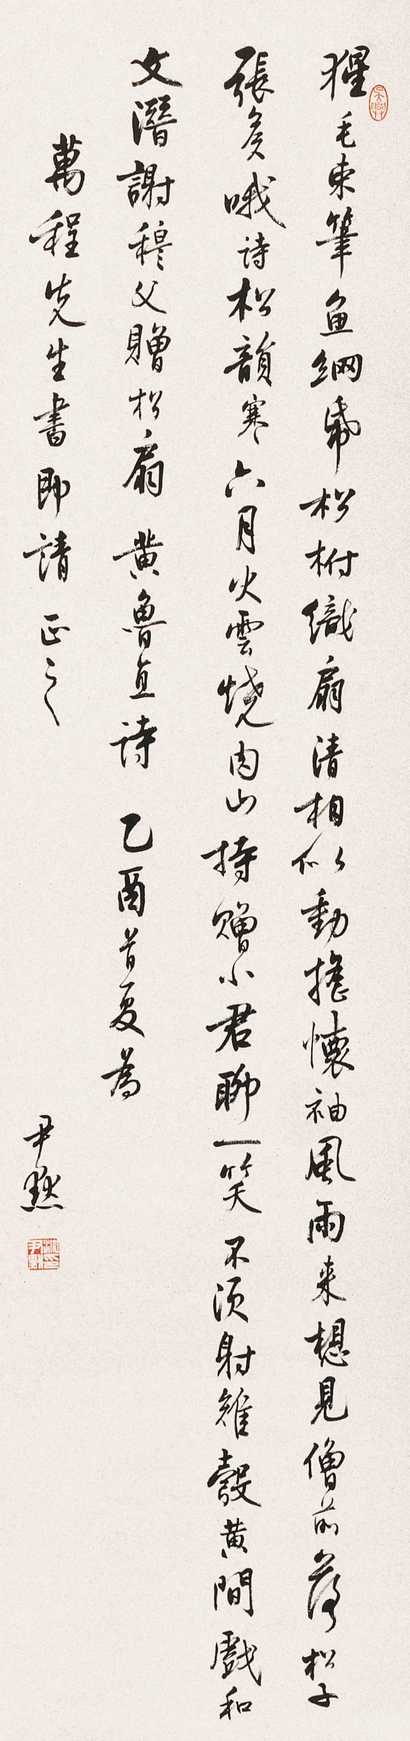 猩毛束筆魚網紙松柎織扇清相似動搖懷袖風雨来想見僧前落松子
張矦哦诗松韻寒六月火雲燒肉山持贈小君聊一笑不須射雉彀黄間戲和
文潛謝穆父贈松扇黄魯直诗乙酉首夏為
萬程先生書即請正之
尹默